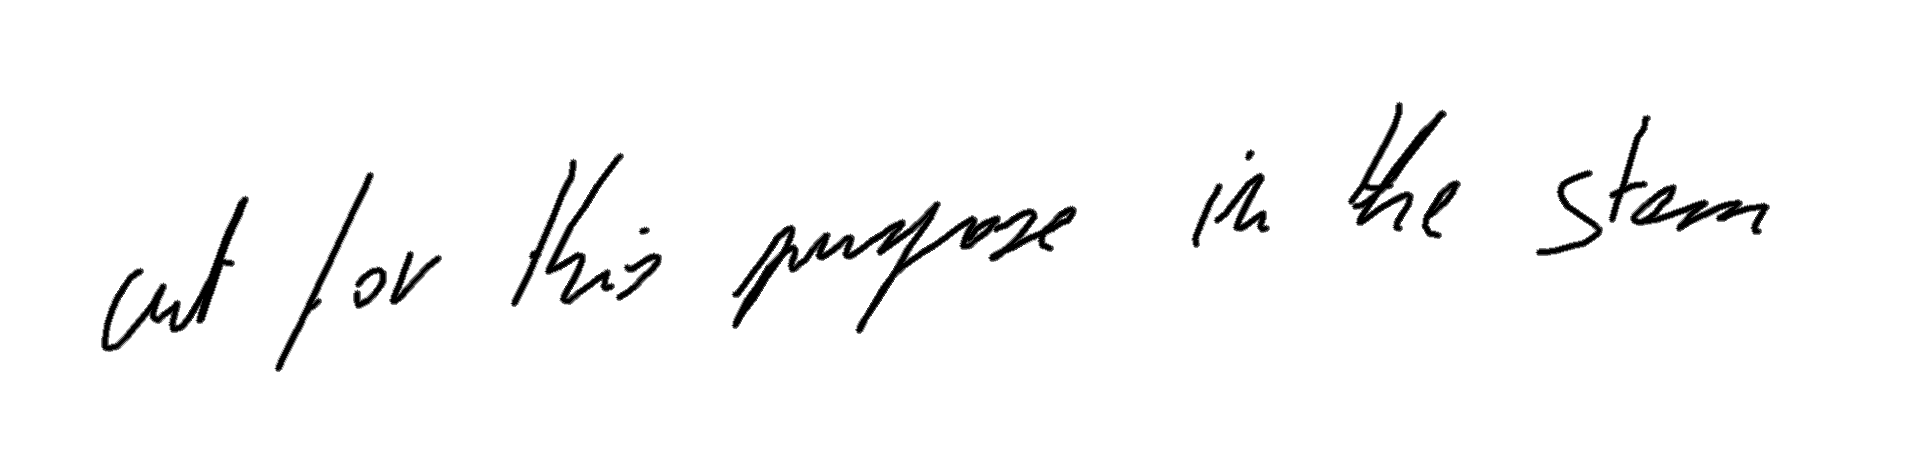 cut for this purpose in the stem